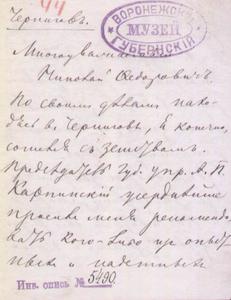 44
Черниговъ.
ВОРОНЕЖСКІЙ
МУЗЕЙ
ГУБЕРНСКІЙ
Многоуважаемый
Николай Федоровичъ
По своимъ дѣламъ нахо-
дясь въ Черниговѣ, я конечно,
сошелся съ земствомъ.
Предсѣдатель Губ. упр. А. П.
Карпинскій усерднѣйше
просилъ меня рекомендо-
вать кого-либо изъ опыт-
ныхъ и
Инв. опись № 5490.